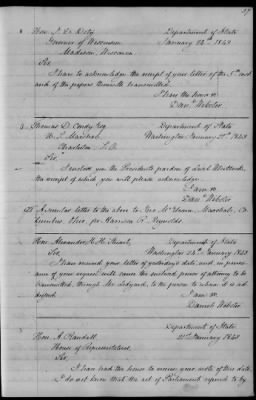 Hon. J. D. Doty Department of State
Governor of Wisconsin January 24th 1843
Madison, Wisconsin
Sir,
I have to acknowledge the receipt of your letter of the 5th inst
and of the papers therewith transmitted.
I have the honor &c
Danl Webster
Thomas D. Condy Esq Department of State
U. S. Marshal Washington January 1843
Charleston S. C.
Sir
I enclose you the President's pardon of
the receipt of which you will please acknowledge.
I am &c
Danl Webster
A similar letter to the above to Marshal, Co-
lumbus, Ohio, for Harrison R. Reynolds
Hon. Alexander H. H. Stuart, Department of State
Sir Washington 24th January 1843
I have received your letter of yesterday's date, and in pursu-
ance of your request will cause the enclosed power of attorney to be
transmitted, through Mr Ledyard, to the person to whom it is ad-
dressed.
I am &c
Daniel Webster
Department of State
Hon. A. Randall January 1843
House of Representatives,
Sir,
I have had the honor to receive your note of this date.
I do not know that the act of Parliament referred to by